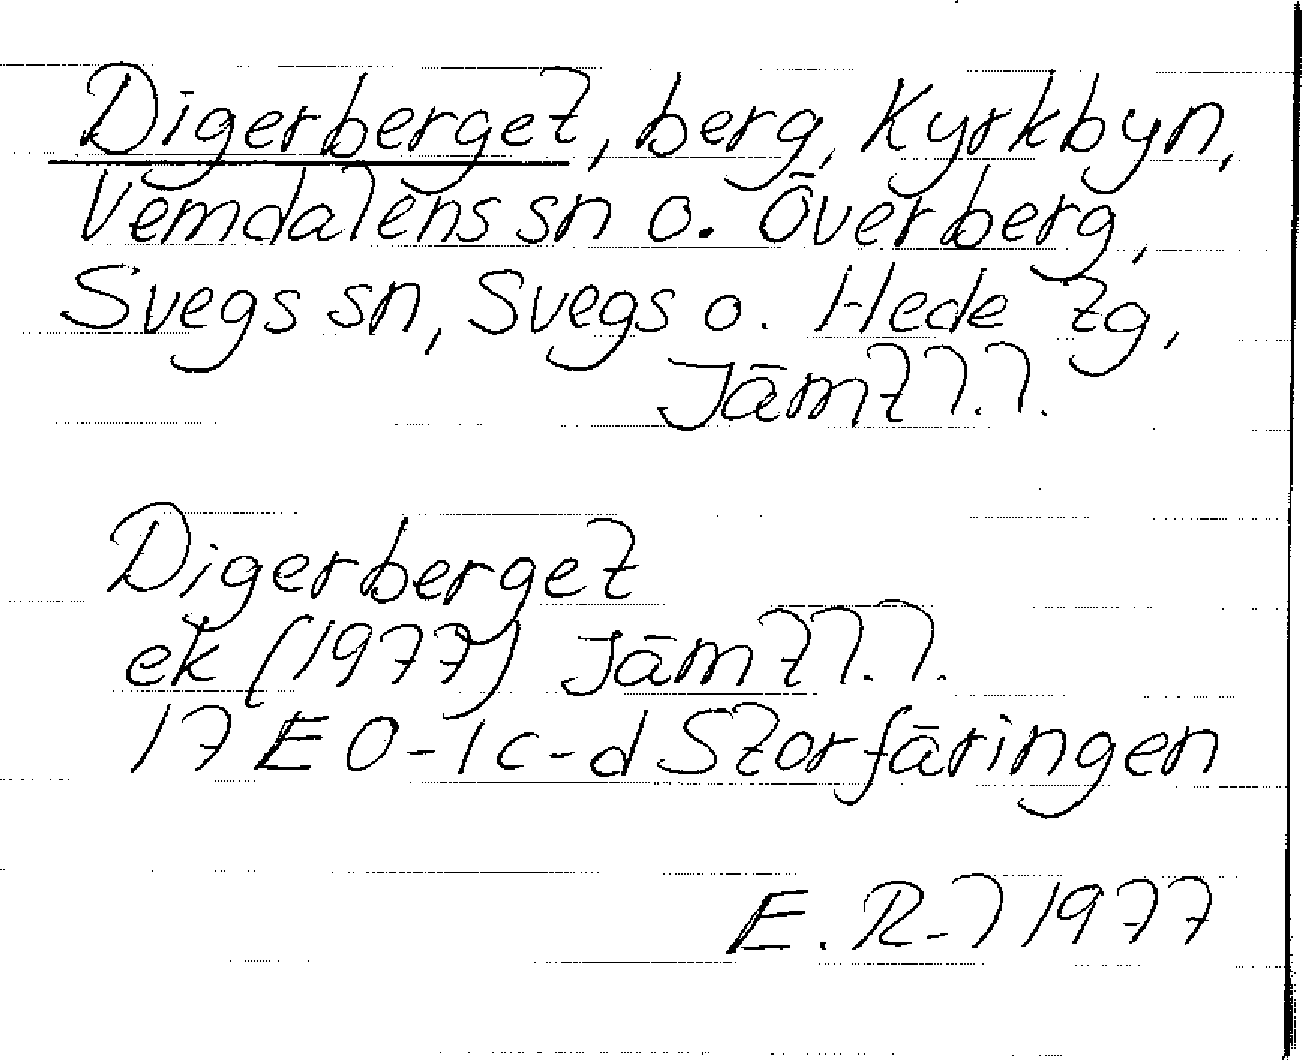 Digerberget, berg, Kyrkbyn,
Vemdalens sn o. Överberg,
Svegs sn, Svegs o. Hede tg,
Jämtl.l.
Digerberget
ek (1977) Jämtl.l.
17 E 0-1 c-d Storfäringen
E. R-l 1977